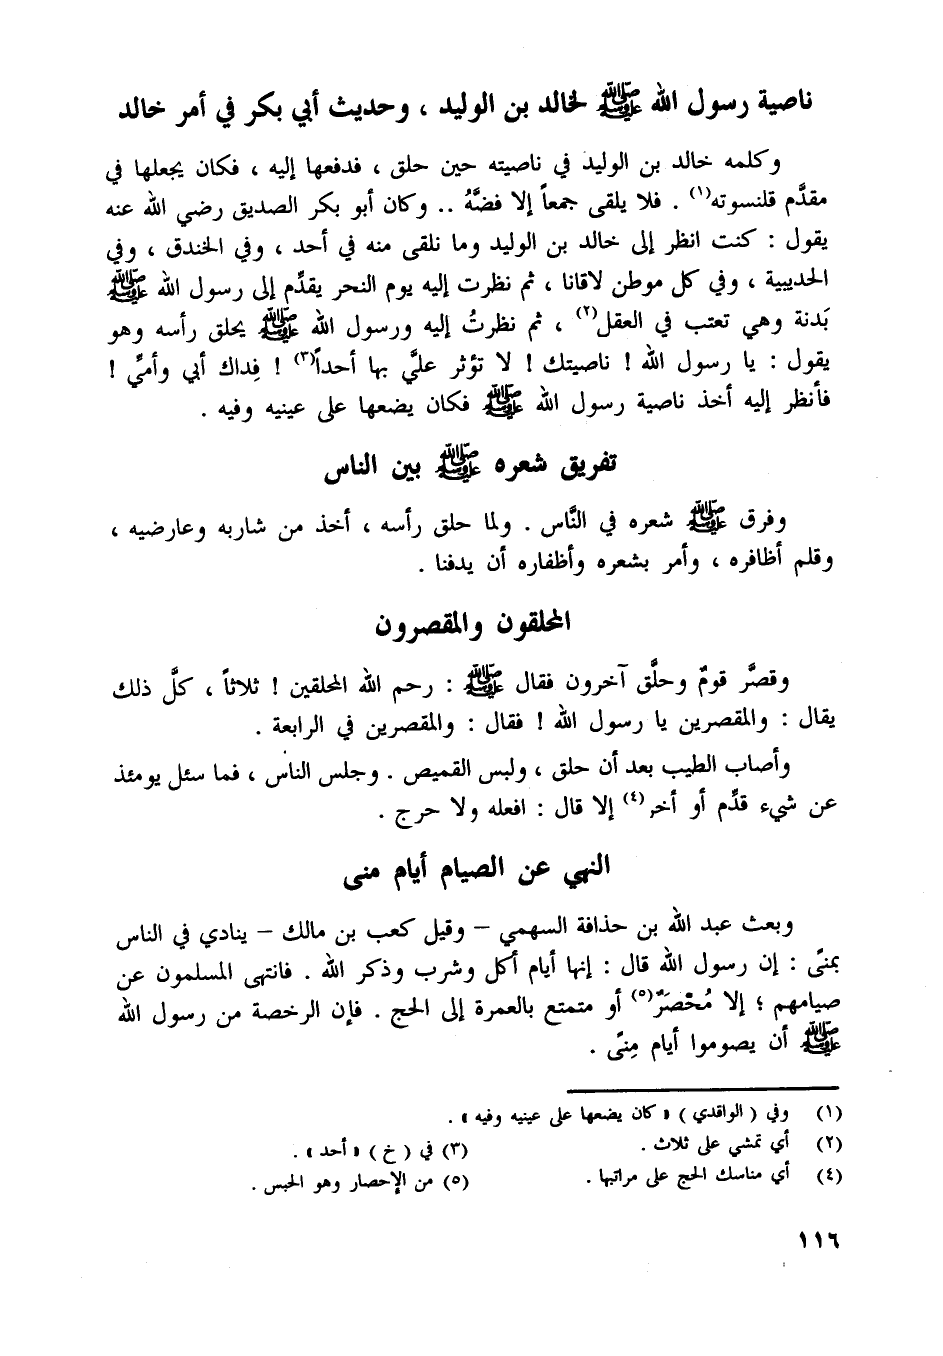 ناصية رسول الله ﷺ لخالد بن الوليد ، وحديث أبي بكر في أمر خالد
وكلمه خالد بن الوليد في ناصيته حين حلق ، فدفعها إليه ، فكان يجعلها في
مقدَّم قلنسوته(١) . فلا يلقى جمعاً إلا فضَّهُ .. وكان أبو بكر الصديق رضي الله عنه
يقول : كنت انظر إلى خالد بن الوليد وما نلقى منه في أحد ، وفي الخندق ، وفي
الحديبية ، وفي كل موطن لاقانا ، ثم نظرت إليه يوم النحر يقدِّم إلى رسول الله ﷺ
بَدنة وهي تعتب في العقل(٢) ، ثم نظرتُ إليه ورسول الله ﷺ يحلق رأسه وهو
يقول : يا رسول الله ! ناصيتك ! لا تؤثر عليَّ بها أحداً(٣) ! فِداك أبي وأميِّ !
فأنظر إليه أخذ ناصية رسول الله ﷺ فكان يضعها على عينيه وفيه .
تفريق شعره ﷺ بين الناس
وفرق ﷺ شعره في النَّاس . ولما حلق رأسه ، أخذ من شاربه وعارضيه ،
وقلم أظافره ، وأمر بشعره وأظفاره أن يدفنا .
المحلقون والمقصرون
وقصَّر قومٌ وحلَّق آخرون فقال ﷺ : رحم الله المحلقين ! ثلاثاً ، كلَّ ذلك
يقال : والمقصرين يا رسول الله ! فقال : والمقصرين في الرابعة .
وأصاب الطيب بعد أن حلق ، ولبس القميص . وجلس الناس ، فما سئل يومئذ
عن شيء قدِّم أو أخر(٤) إلا قال : افعله ولا حرج .
النهي عن الصيام أيام منى
وبعث عبد الله بن حذافة السهمي – وقيل كعب بن مالك – ينادي في الناس
بمنىً : إن رسول الله قال : إنها أيام أكل وشرب وذكر الله . فانتهى المسلمون عن
صيامهم ؛ إلا مُحْصَرٌ(٥) أو متمتع بالعمرة إلى الحج . فإن الرخصة من رسول الله
ﷺ أن يصوموا أيام مِنىً .
(١) وفي ( الواقدي ) « كان يضعها على عينيه وفيه » .
(٢) أي تمشي على ثلاث . (٣) في ( خ ) « أحد » .
(٤) أي مناسك الحج على مراتبها . (٥) من الإحصار وهو الحبس .
١١٦